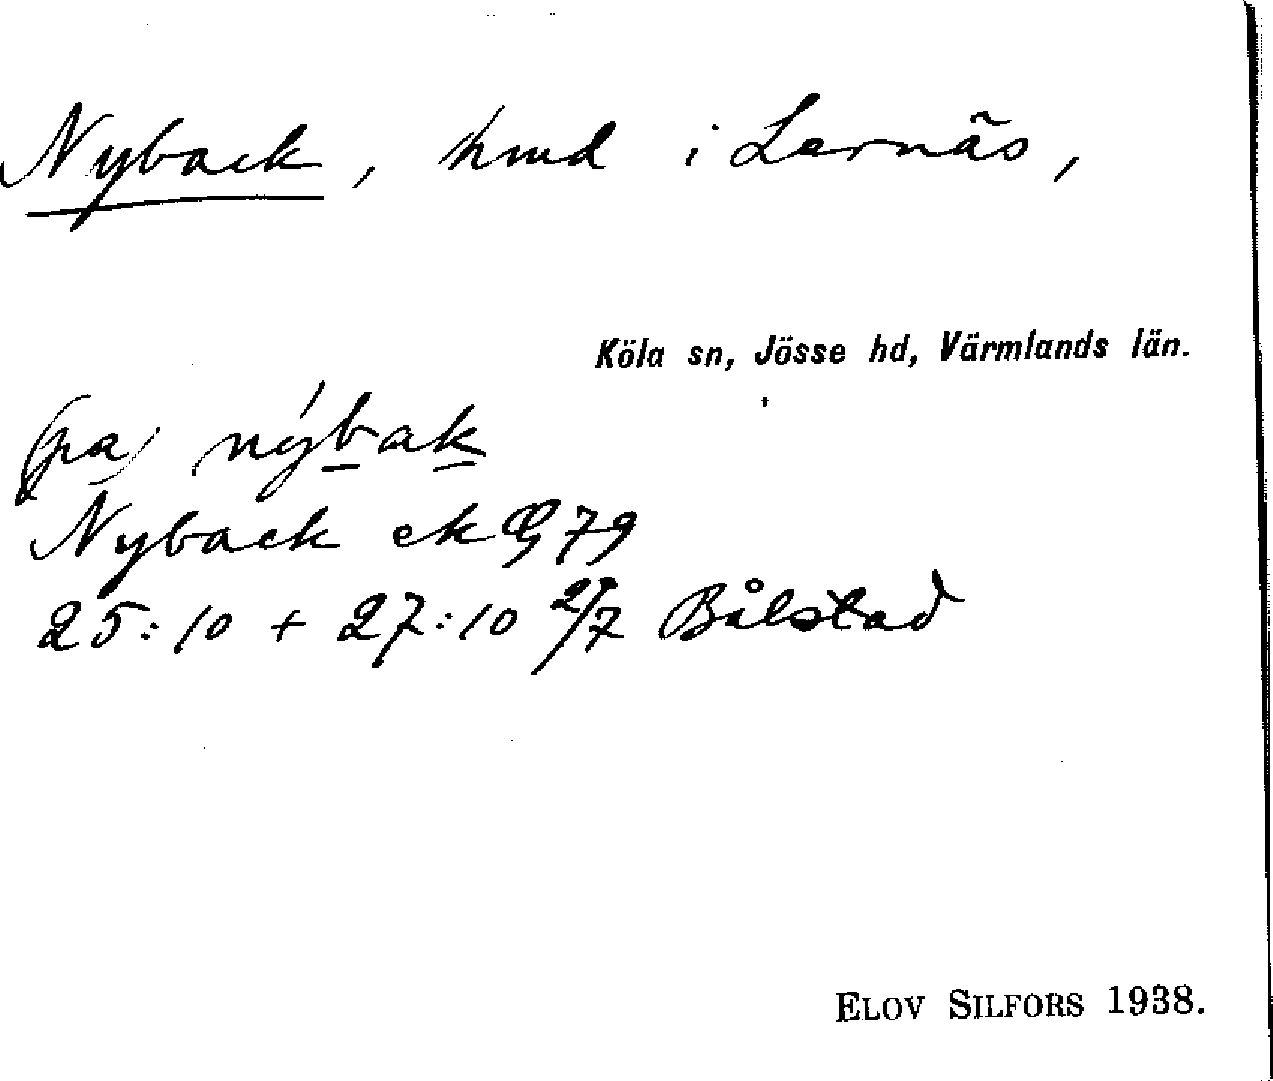 Nyback, hmd i Lernäs,
Köla sn, Jösse hd, Värmlands län.
(pa) nýbak
Nyback ek 79
25:10 + 27:10 27/7 Bålstad
ELOV SILFORS 1938.